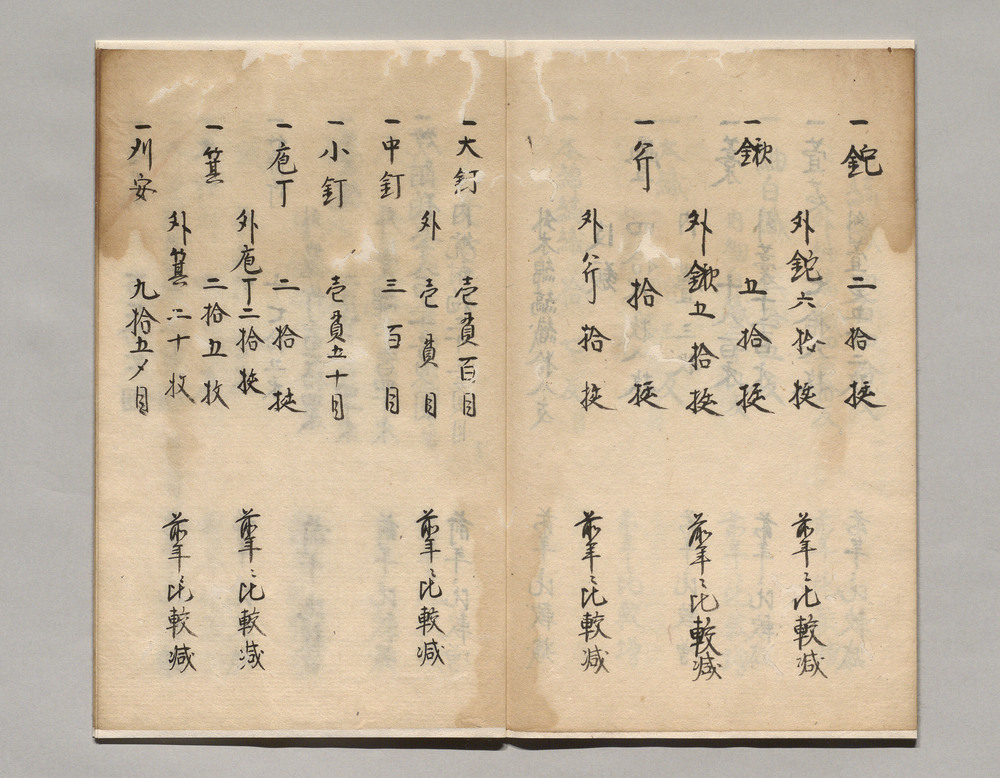 一鉈 二百拾挺
外鉈六拾挺 前年ニ比較減
一鍬 五拾挺
外鍬五拾挺 前年ニ比較減
一斧 拾挺
外斧拾挺 前年ニ比較減
一大釘 壱貫百目
外壱貫目 前年ニ比較減
一中釘 三百目
一小釘 壱貫五十目
一庖丁 二拾挺
外庖丁二拾挺 前年ニ比較減
一箕 二拾五枚
外箕二十枚 前年ニ比較減
一刈安 九拾五〆目